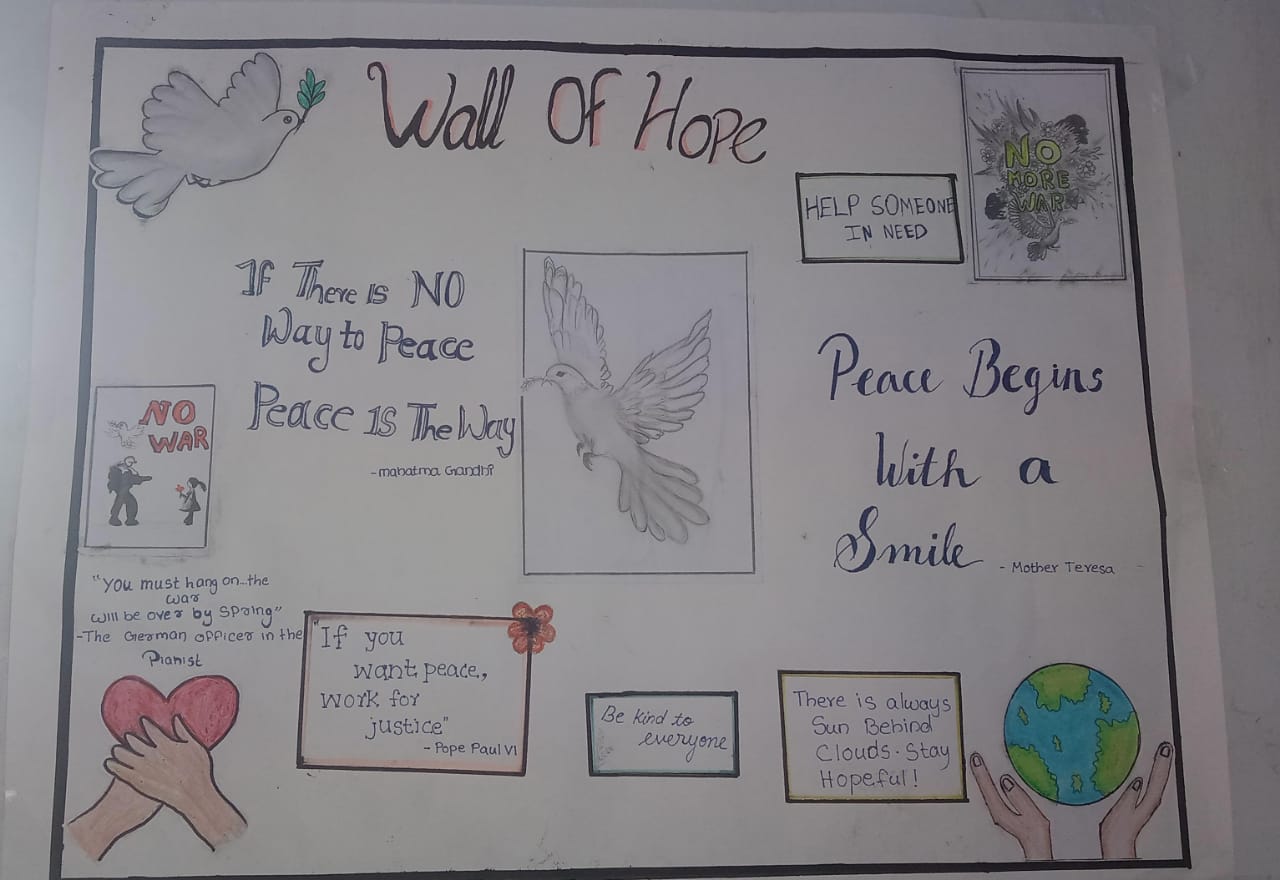 Wall Of Hope
NO
MORE
WAR
HELP SOMEONE
IN NEED
If There is NO
Way to Peace
Peace is The Way
-mahatma Gandhi
Peace Begins
With a
Smile
- Mother Teresa
NO
WAR
"You must hang on...the
war
will be over by Spring"
-The German officer in the
Pianist
"If you
want peace,
work for
justice"
- Pope Paul VI
Be kind to
everyone
There is always
Sun Behind
Clouds. Stay
Hopeful!